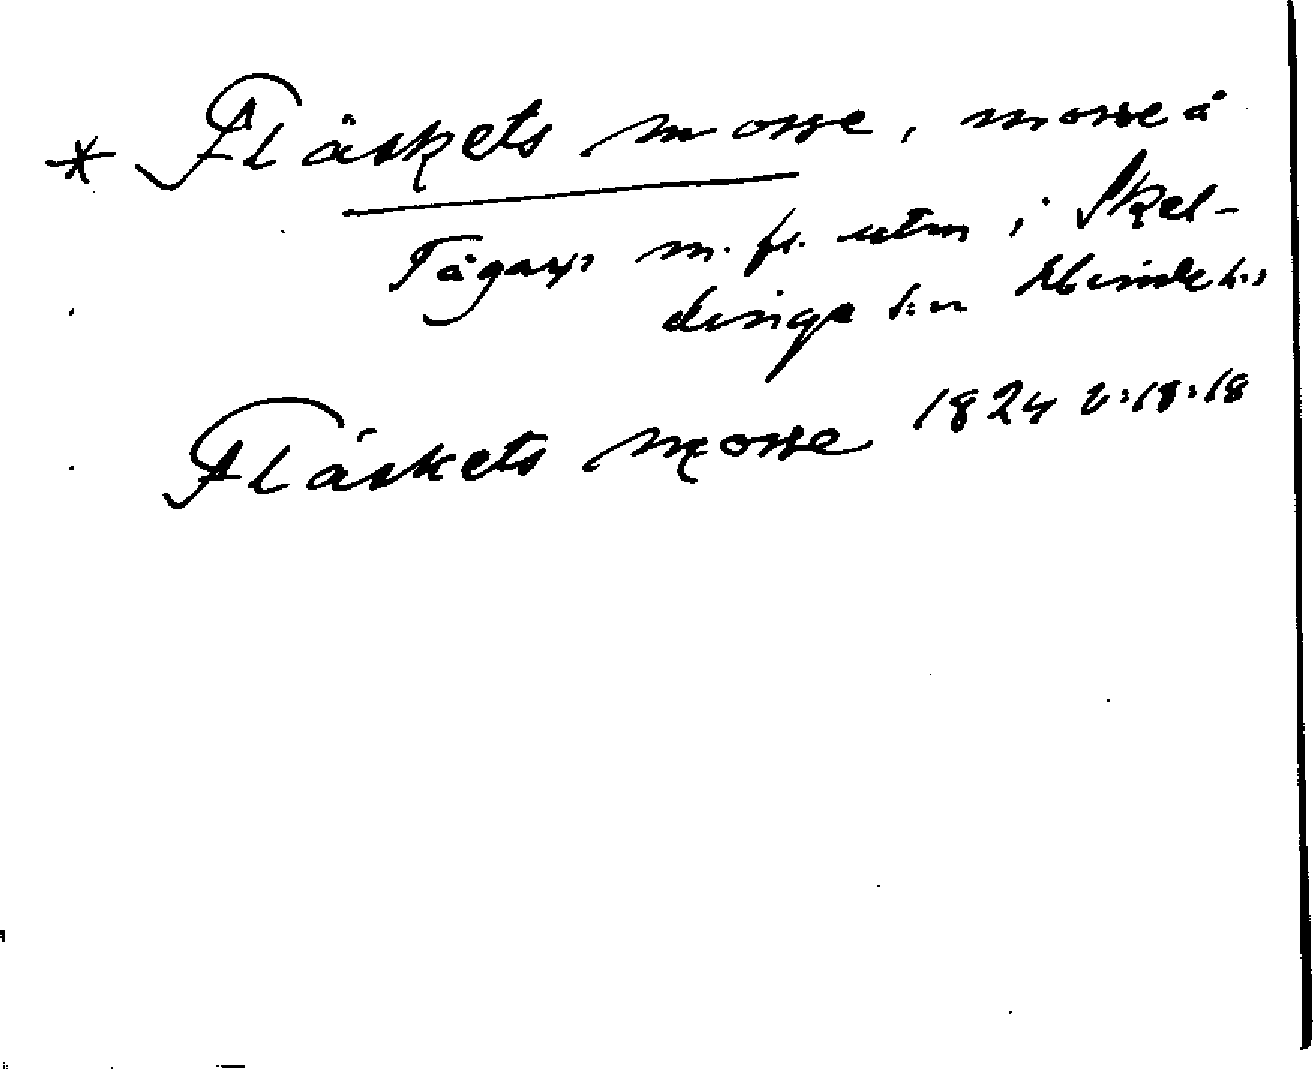 * Fläskets mosse, mosse å
Tågarp m. fl. utm i Skel-
dinge s:n Albinda h:d
Fläskets mosse 1824 2:18:18